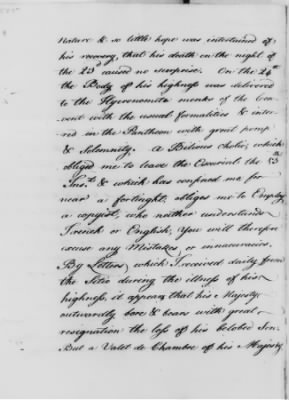 nature & so little hope was entertained of
his recovery, that his death on the night of
the 23d caused no surprise. On the 24th
the Body of his highness was delivered
to the Hyeronomite monks of the Con-
vent with the usual formalities & inter-
red in the Pantheon with great pomp
& Solemnity. A Bilious cholic, which
obliged me to leave the Escurial the
Inst. & which has confined me for
near a fortnight, obliges me to Employ
a copyist, who neither understands
French or English; You will therefore
excuse any Mistakes, or innacuracies.
By Letters, which I received daily from
the Sitio during the illness of his
highness, it appears that his Majesty
outwardly bore & bears with great
resignation the loss of his beloved Son.
But a Valet de Chambre of his Majesty